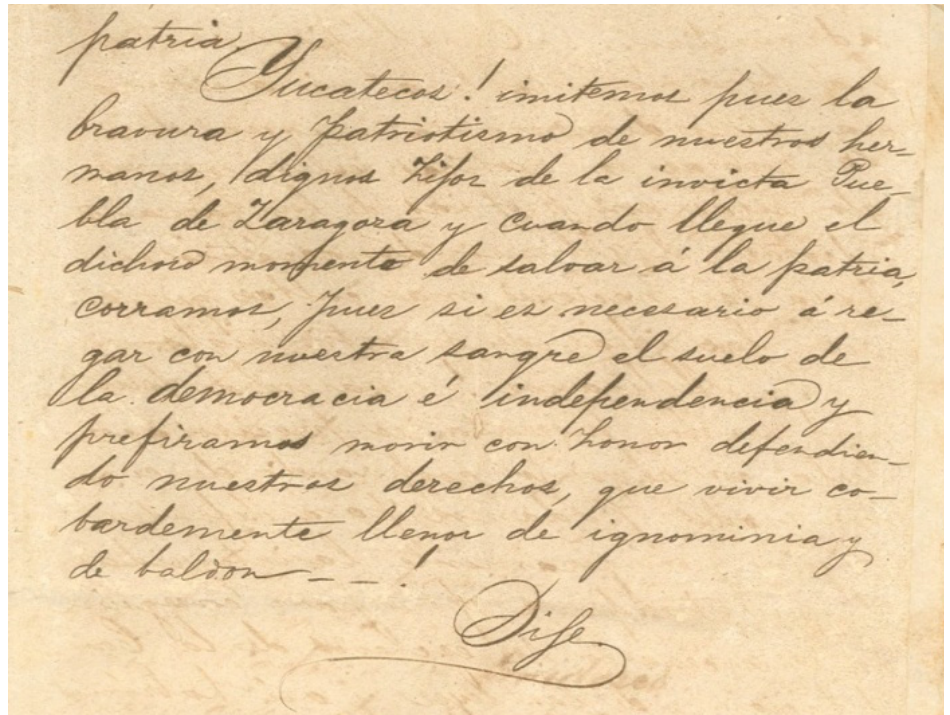 patria.
Yucatecos! imitemos pues la
bravura y patriotismo de nuestros her-
manos, dignos hijos de la invicta Pue-
bla de Zaragoza y cuando llegue el
dichoso momento de salvar á la patria,
corramos, pues si es necesario á re-
gar con nuestra sangre el suelo de
la democracia é independencia y
prefiramos morir con honor defendien-
do nuestros derechos, que vivir co-
bardemente llenos de ignominia y
de baldon - - - !
Dije